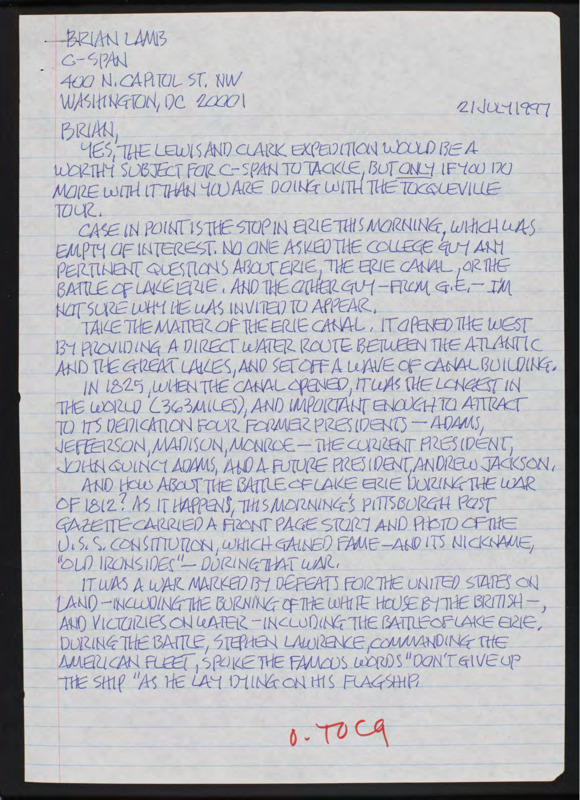 BRIAN LAMB
C-SPAN
400 N. CAPITOL ST. NW
WASHINGTON, DC 20001
21 JULY 1997
BRIAN,
YES, THE LEWIS AND CLARK EXPEDITION WOULD BE A
WORTHY SUBJECT FOR C-SPAN TO TACKLE, BUT ONLY IF YOU DO
MORE WITH IT THAN YOU ARE DOING WITH THE TOCQLEVILLE
TOUR.
CASE IN POINT IS THE STOP IN ERIE THIS MORNING, WHICH WAS
EMPTY OF INTEREST. NO ONE ASKED THE COLLEGE GUY ANY
PERTINENT QUESTIONS ABOUT ERIE, THE ERIE CANAL, OR THE
BATTLE OF LAKE ERIE. AND THE OTHER GUY - FROM G.E. - I'M
NOT SURE WHY HE WAS INVITED TO APPEAR.
TAKE THE MATTER OF THE ERIE CANAL. IT OPENED THE WEST
BY PROVIDING A DIRECT WATER ROUTE BETWEEN THE ATLANTIC
AND THE GREAT LAKES, AND SET OFF A WAVE OF CANAL BUILDING.
IN 1825, WHEN THE CANAL OPENED, IT WAS THE LONGEST IN
THE WORLD (363 MILES), AND IMPORTANT ENOUGH TO ATTRACT
TO ITS DEDICATION FOUR FORMER PRESIDENTS - ADAMS,
JEFFERSON, MADISON, MONROE - THE CURRENT PRESIDENT,
JOHN QUINCY ADAMS, AND A FUTURE PRESIDENT, ANDREW JACKSON.
AND HOW ABOUT THE BATTLE OF LAKE ERIE DURING THE WAR
OF 1812? AS IT HAPPENS, THIS MORNING'S PITTSBURGH POST
GAZETTE CARRIED A FRONT PAGE STORY AND PHOTO OF THE
U.S.S. CONSTITUTION, WHICH GAINED FAME - AND ITS NICKNAME,
"OLD IRONSIDES" - DURING THAT WAR.
IT WAS A WAR MARKED BY DEFEATS FOR THE UNITED STATES ON
LAND - INCLUDING THE BURNING OF THE WHITE HOUSE BY THE BRITISH -,
AND VICTORIES ON WATER - INCLUDING THE BATTLE OF LAKE ERIE.
DURING THE BATTLE, STEPHEN LAWRENCE, COMMANDING THE
AMERICAN FLEET, SPOKE THE FAMOUS WORDS "DON'T GIVE UP
THE SHIP" AS HE LAY DYING ON HIS FLAGSHIP.